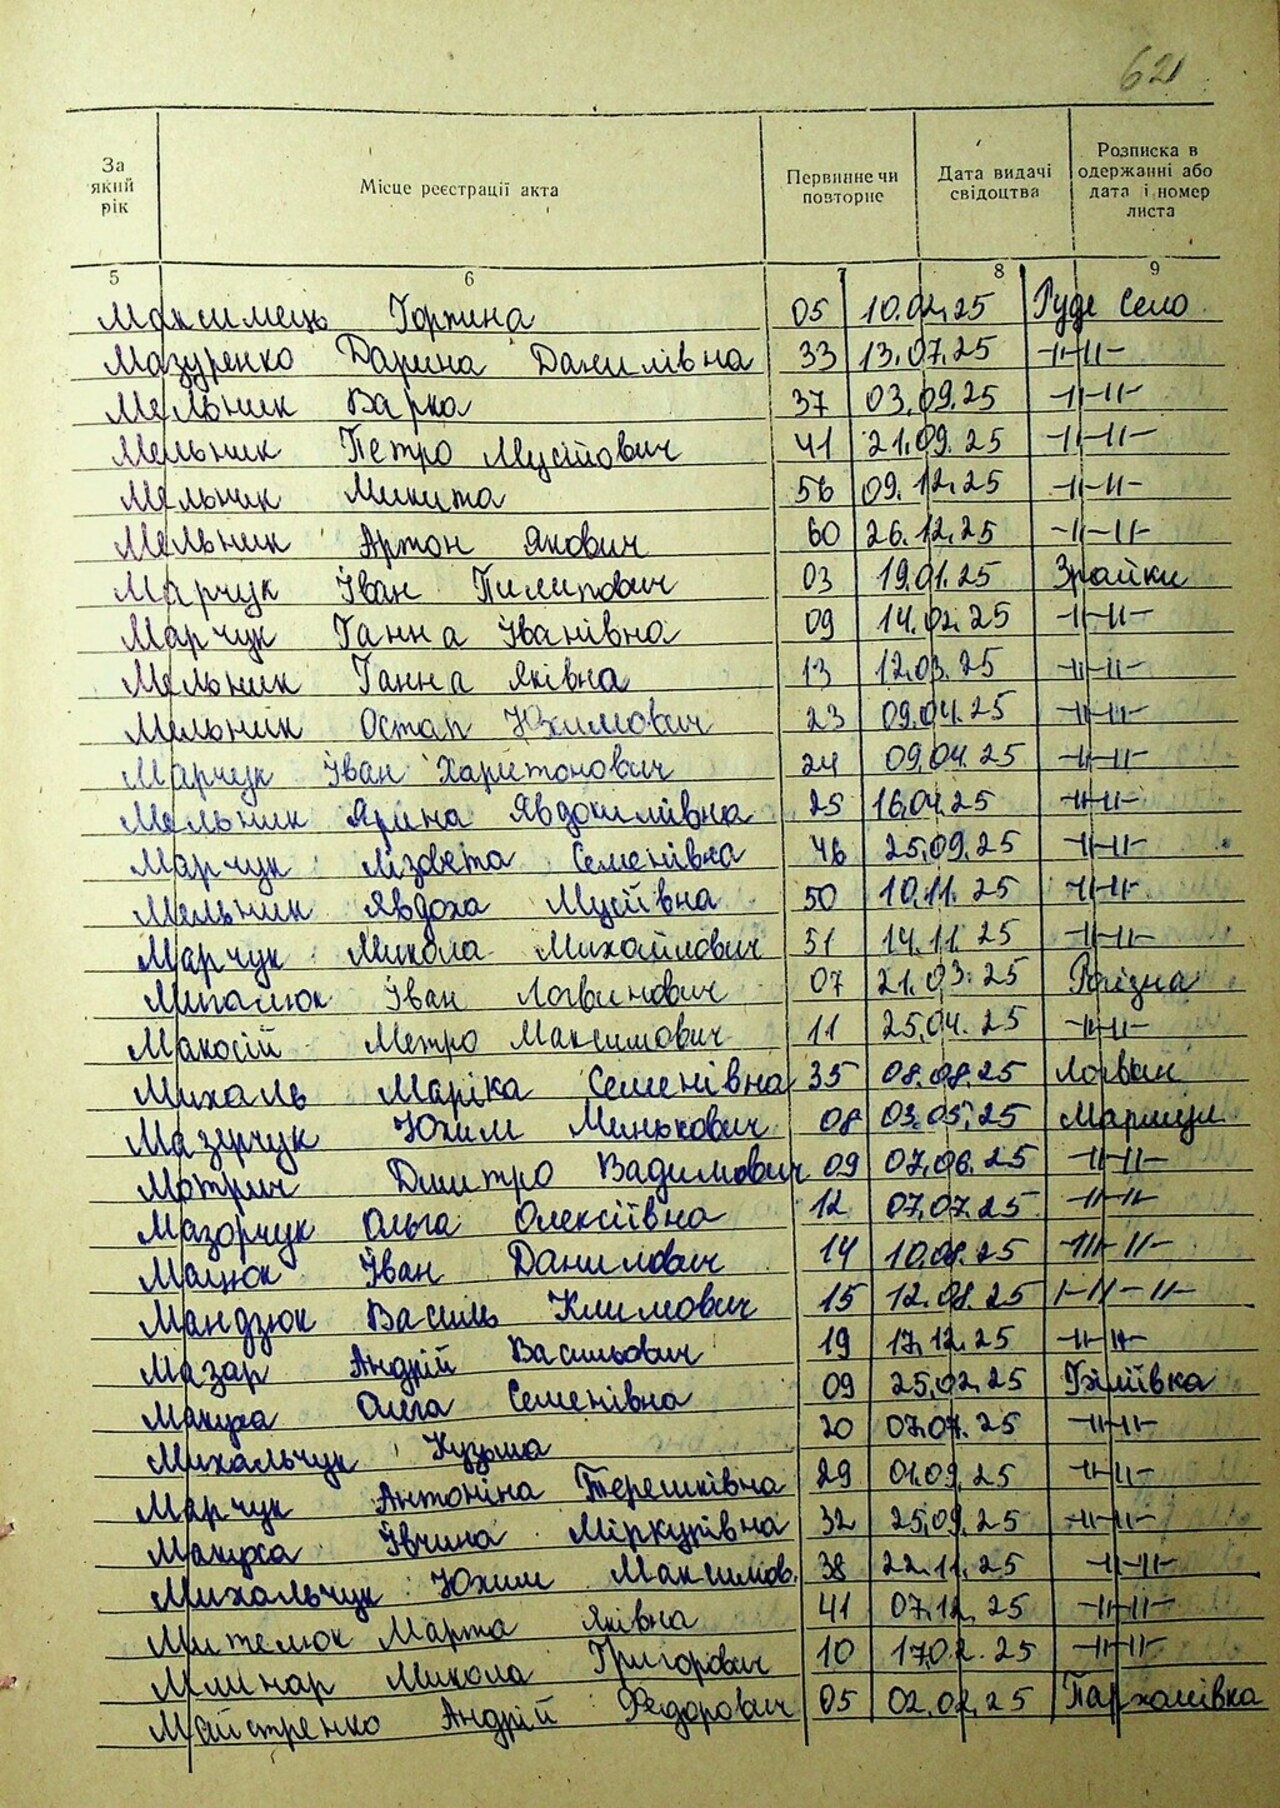 621
За який рік
Місце реєстрації акта
Первинне чи повторне
Дата видачі свідоцтва
Розписка в одержанні або дата і номер листа
5 6 7 8 9
Максимець Горпина 05 10.02.25 Руде Село
Мазуренко Дарина Данилівна 33 13.07.25 -//-//-
Мельник Варка 37 03.09.25 -//-//-
Мельник Петро Мусійович 41 21.09.25 -//-//-
Мельник Микита 56 09.12.25 -//-//-
Мельник Артон Якович 60 26.12.25 -//-//-
Марчук Іван Пилипович 03 19.01.25 Зрайки
Марчук Ганна Іванівна 09 14.02.25 -//-//-
Мельник Ганна Яківна 13 12.03.25 -//-//-
Мельник Остап Юхимович 23 09.04.25 -//-//-
Марчук Іван Харитонович 24 09.04.25 -//-//-
Мельник Ярина Явдокимівна 25 16.04.25 -//-//-
Марчук Лізавета Семенівна 46 25.09.25 -//-//-
Мельник Явдоха Мусіївна 50 10.11.25 -//-//-
Марчук Микола Михайлович 51 14.11.25 -//-//-
Іван Логвинович 07 21.03.25
Макосій Метро Максимович 11 25.04.25 -//-//-
Михаль Маріка Семенівна 35 08.08.25 Логвин
Мазерчук Юхим Минькович 08 03.05.25
Мотрич Дмитро Вадимович 09 07.06.25 -//-//-
Мазорчук Ольга Олексіївна 12 07.07.25 -//-//-
Мацюк Іван Данилович 14 10.08.25 -///-//-
Мандзюк Василь Климович 15 12.08.25 -//-//-
Мазар Андрій Васильович 19 17.12.25 -//-//-
Макуха Олега Семенівна 09 25.02.25
Михальчук Кузьма 20 07.07.25 -//-//-
Марчук Антоніна Терешківна 29 01.09.25 -//-//-
Макуха Івчина Міркурівна 32 25.09.25 -//-//-
Михальчук Юхим Максимов. 38 22.11.25 -//-//-
Мителюк Марта Яківна 41 07.12.25 -//-//-
Млинар Микола Григорович 10 17.02.25 -//-//-
Майстренко Андрій Федорович 05 02.02.25 Пархомівка